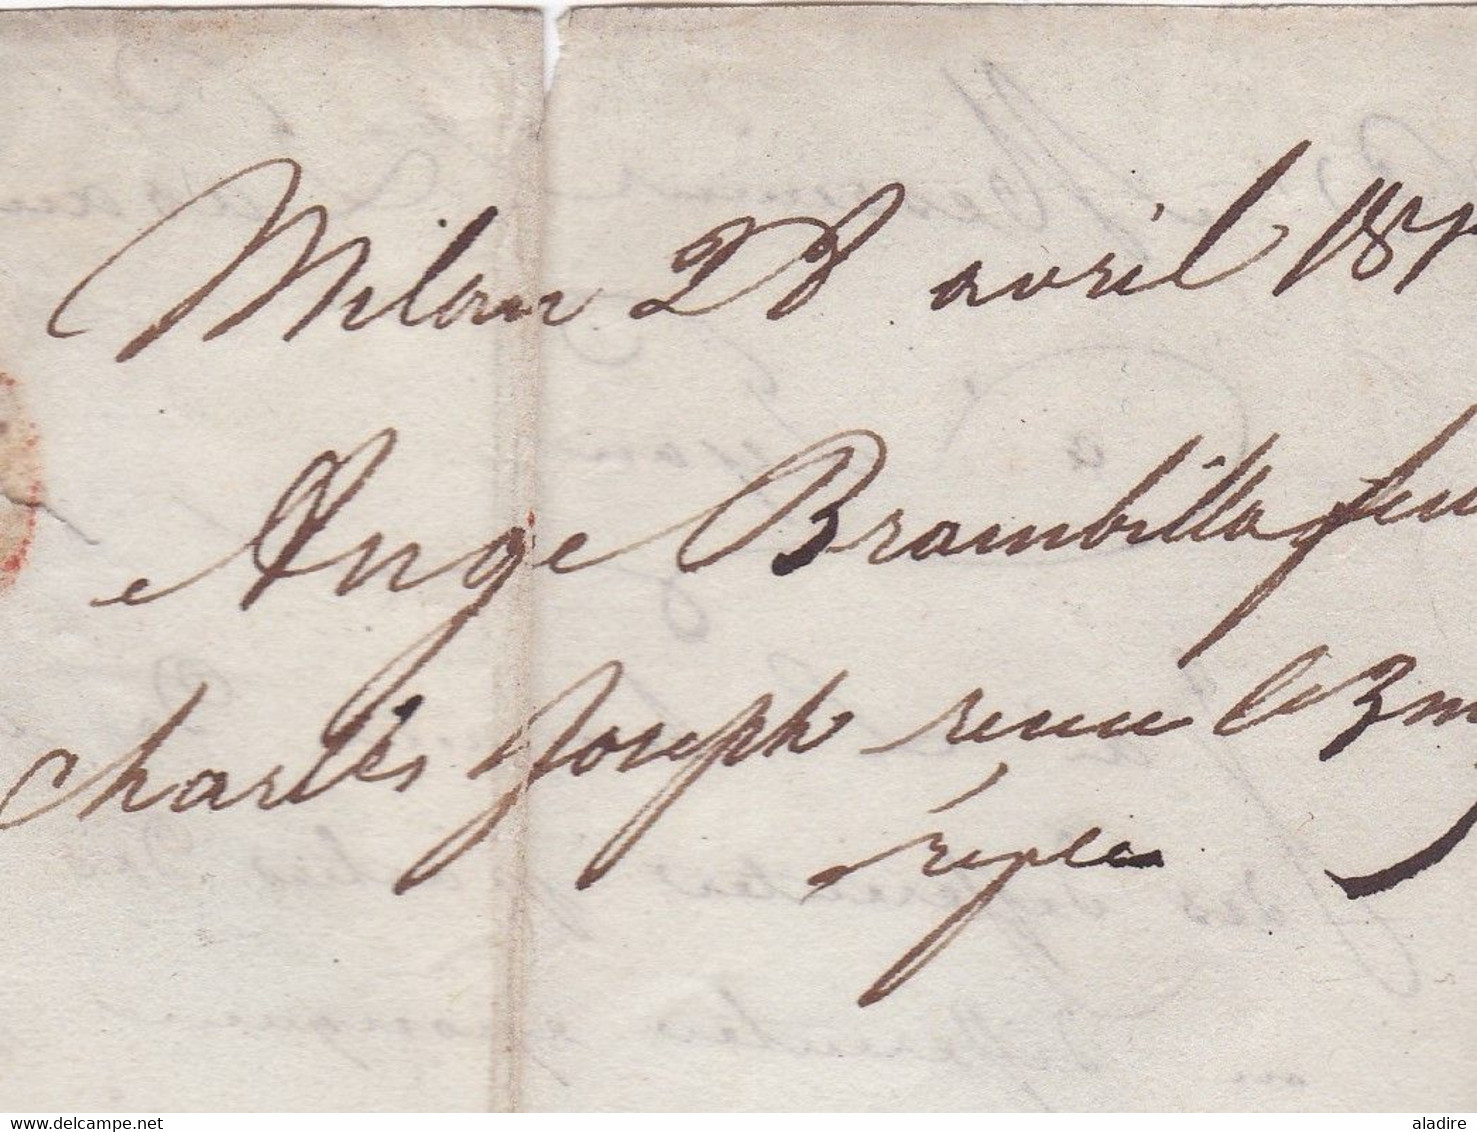 Milan 28 avril 181
Ange Brambilla feu
Charles Joseph reçue le 3 m
répl
delcampe.net
aladire